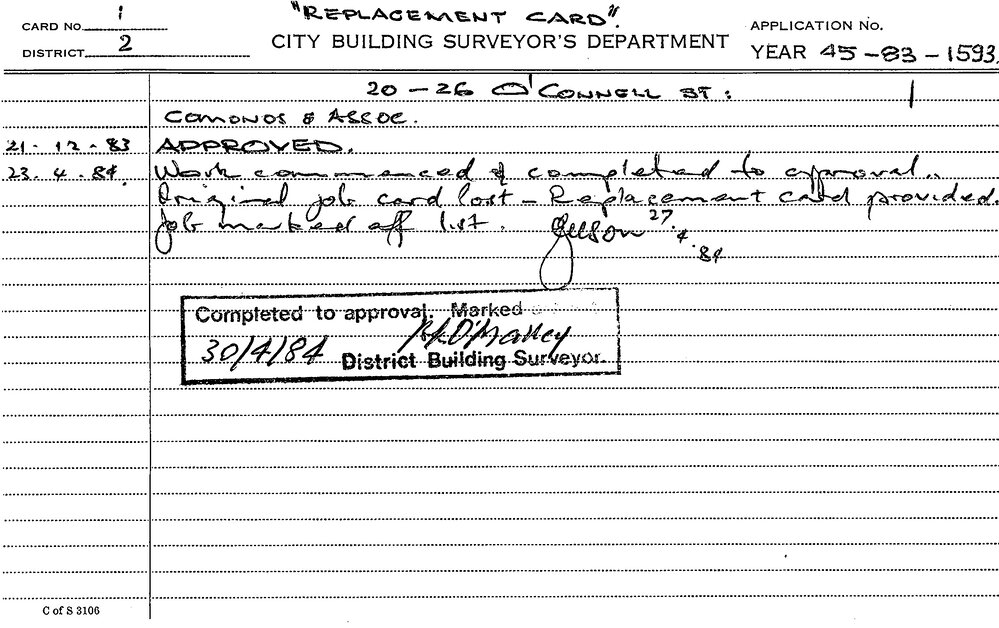 "REPLACEMENT CARD".
CARD No. 1
DISTRICT 2
CITY BUILDING SURVEYOR'S DEPARTMENT
APPLICATION No.
YEAR 45-83-1593.
20-26 O'CONNELL ST: 1
COMONOS & ASSOC.
21-12-83 APPROVED.
23.4.84. Work commenced & completed to approval..
Original job card lost - Replacement card provided.
Job marked off list. 27.4.84
Completed to approval. Marked
30/4/84 O'Malley
District Building Surveyor.
C of S 3106